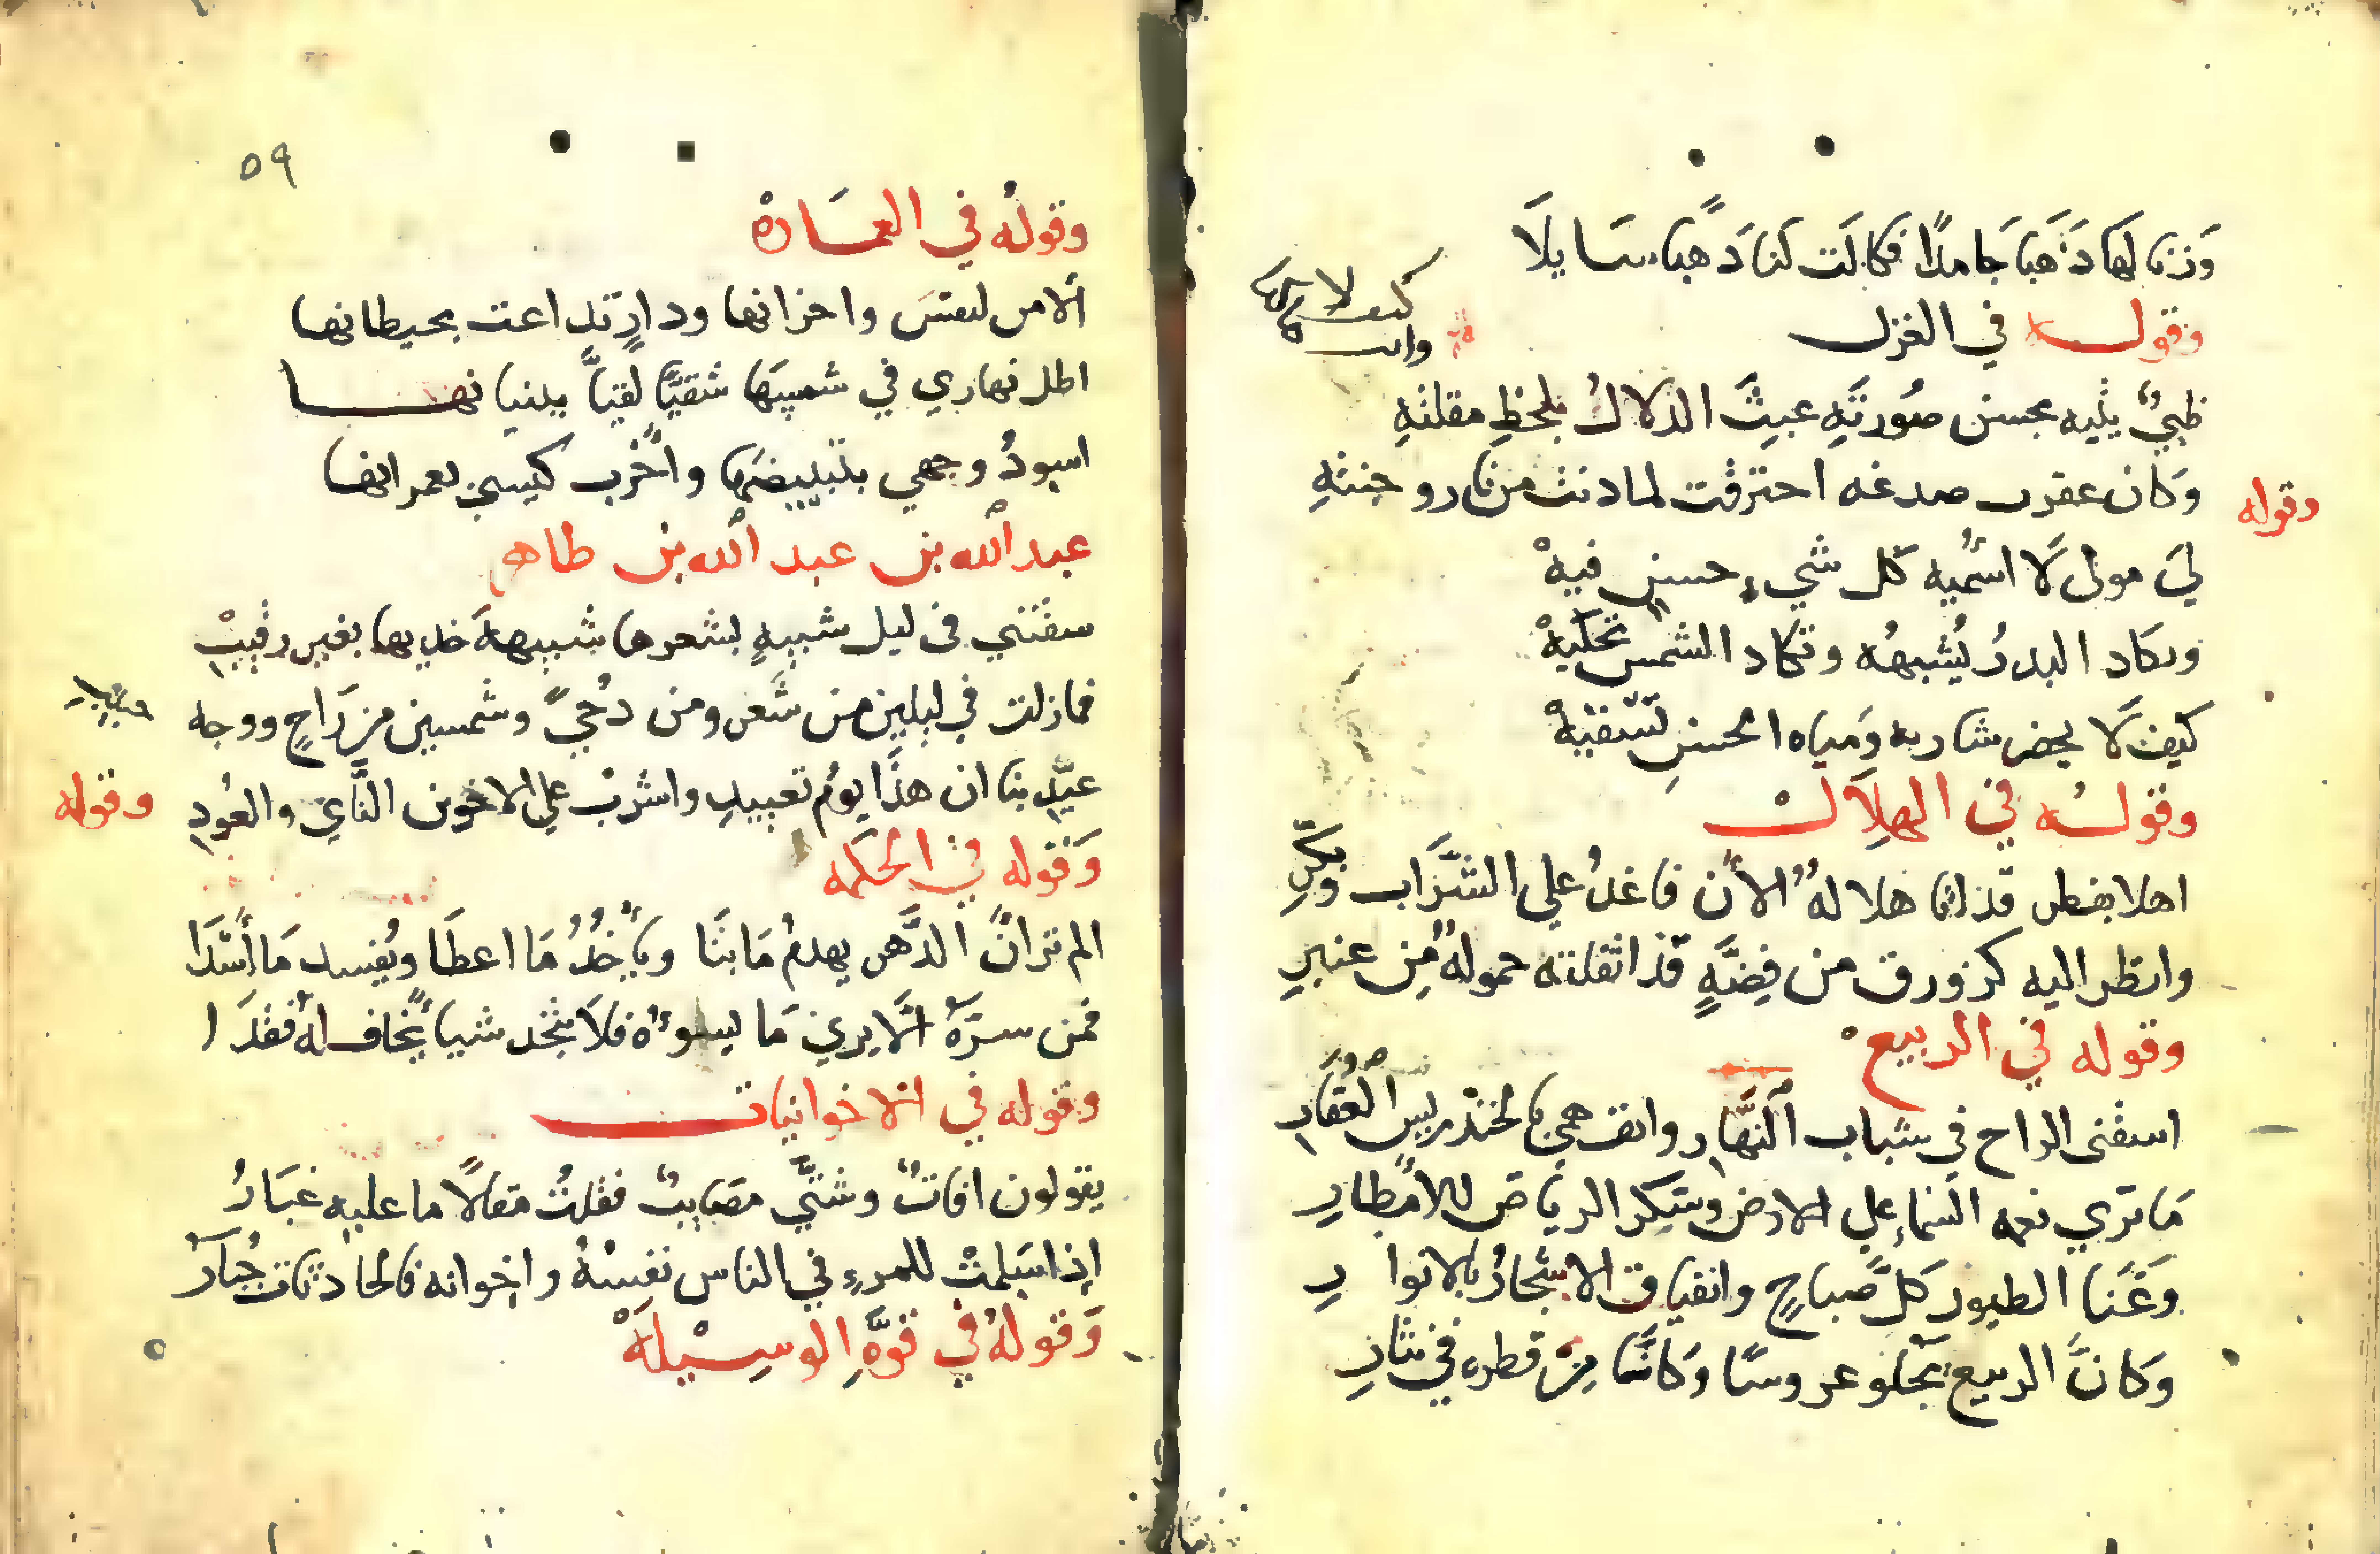 وَزنا لهَا ذَهَبا جَامدًا فكالَت لنا ذَهبًا سَايلَا
وقوله في الغزل
ظبيٌ يتيه بحسن صُورتهِ عبثَ الدلالُ بلحظِ مقلتهِ
وَكان عقرب صدغه احترقت لما دنت من نار وجنتهِ
وقوله
ليَ مولى لَا اسُميه كل شيء حسن فيهْ
وىكاد البدرُ يُشبههُ وتكاد الشمس تحكيهْ
كيف لَا يخضر شاربه وَمياه الحسنِ تسْقيهْ
وقولُه في الهلَالْ
اهلا بفطر قد انا هلالهُ الأن فاغدُ على الشَّراب وبكّرِ
وانظر اليه كزورق من فِضَّةٍ قد اثقلته حمولهٌ مِن عنبرِ
وقوله في الربيع
اسقنى الراح في شباب النَّهار وانف همي بالخندريس العُقارِ
مَا تري نعمه السَماء علي الارض وشكر الرياض للامطارِ
وَغَنا الطيور كلَّ صباحٍ وانفتاق الاشجارُ بالانوارِ
وَكانَّ الربيع يجلو عروسًا وَكانَّا مِن قطره في نثارِ
٥٩
وقولُه في العمَارهْ
ألا من لنفسَ واحزانها ودارٍ تداعت بحيطانها
اظل نهاري في شمسهَا شقيًّا لقيًّا ببنيانها
اسودُ وجهي بتبييضهَا وأخرب كيسي بعمرانها
عبد الله بن عبد الله بن طاهر
سقتني فى ليل شبيهٍ بشعرها شبيههَ خديها بغير رقيبِ
فمازلت في ليلين من شَعر ومن دُجيً وشمسين من رَاحٍ ووجه حبيب
وقوله
عيّدِ بنا ان هذَا يومُ تعييدِ واشربْ علي الاخوين النَّاي والعُودِ
وَقوله في الحكمه
الم تر انَّ الدَّهر يهدمُ مَا بنَا ويأخُذُ مَا اعطَا ويُفسد مَا أسْدَا
فمن سرَّهُ ألَّا يري مَا يسوءُه فلَا يتخد شيا يَّخاف لهُ فقدَا
وقوله في الاخوانيات
يقولون افاتٌ وشتَّي مصَايبٌ فقلتُ مقالًا ما عليه غبَارُ
إذا سَلمتْ للمرءِ في الناس نفسُهُ واخوانه فالحادثات جُبَارُ
وَقولهُ في قوَّةِ الوسِيْلَهْ